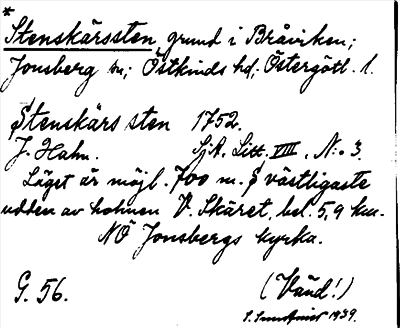 *
Stenskärssten, grund i Bråviken;
Jonsberg sn; Östkinds hd; Östergötl. l.
Stenskärs sten 1752.
J. Hahn. SjA. Litt. VIII. N:o 3.
Läget är möjl. 700 m. S västligaste
udden av holmen V. Skäret, bel. 5,9 km.
NÖ Jonsbergs kyrka.
G. 56. (Vänd!)
1939.